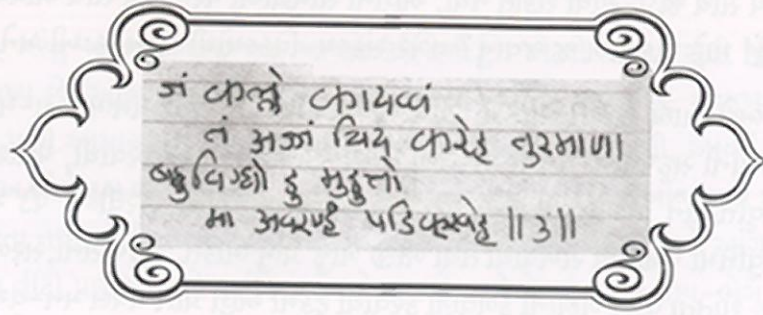 जं कल्ले कायव्वं
तं अज्जं चिय करेह तुरमाणा
बहुविग्घो हु मुहुत्तो
मा अवरण्हं पडिक्खेह ॥३॥